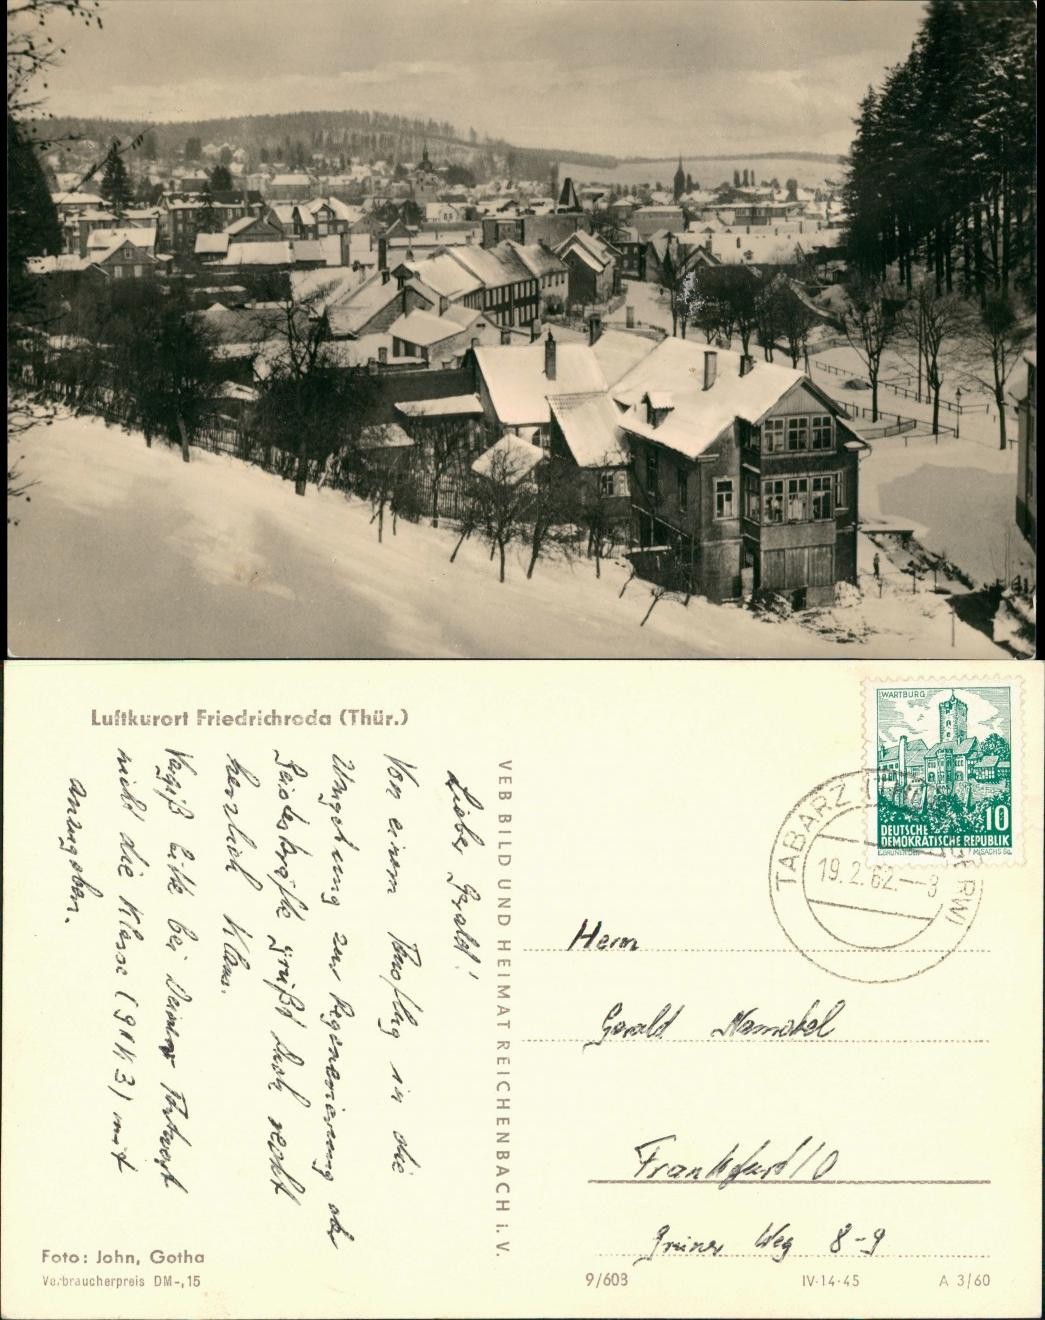 Luftkurort Friedrichroda (Thür.)
WARTBURG
10
DEUTSCHE
DEMOKRATISCHE REPUBLIK
TABARZ (THÜR
19.2.62.--8
Lieber Gerald!
Von einem Ausflug in die
Umgebung zur Regenerierung der
Geisteskräfte grüßt Dich recht
herzlich Klaus.
Vergiß bitte bei Deiner Antwort
nicht die Klasse (9 A 1/3) mit
anzugeben.
VEB BILD UND HEIMAT REICHENBACH i. V.
Herrn
Gerald
Frankfurt/O
Grüner Weg 8-9
Foto: John, Gotha
Verbraucherpreis DM-,15
9/603
IV-14-45
A 3/60